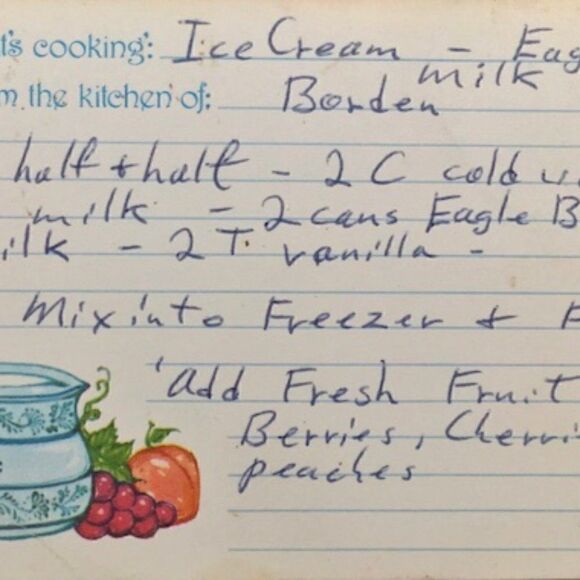 t's cooking: Ice Cream - Eag
milk
m the kitchen of: Borden
half + half - 2 C cold
milk - 2 cans Eagle B
ilk - 2 T. vanilla -
Mix into Freezer + F
add Fresh Fruit
Berries, Cherri
peaches